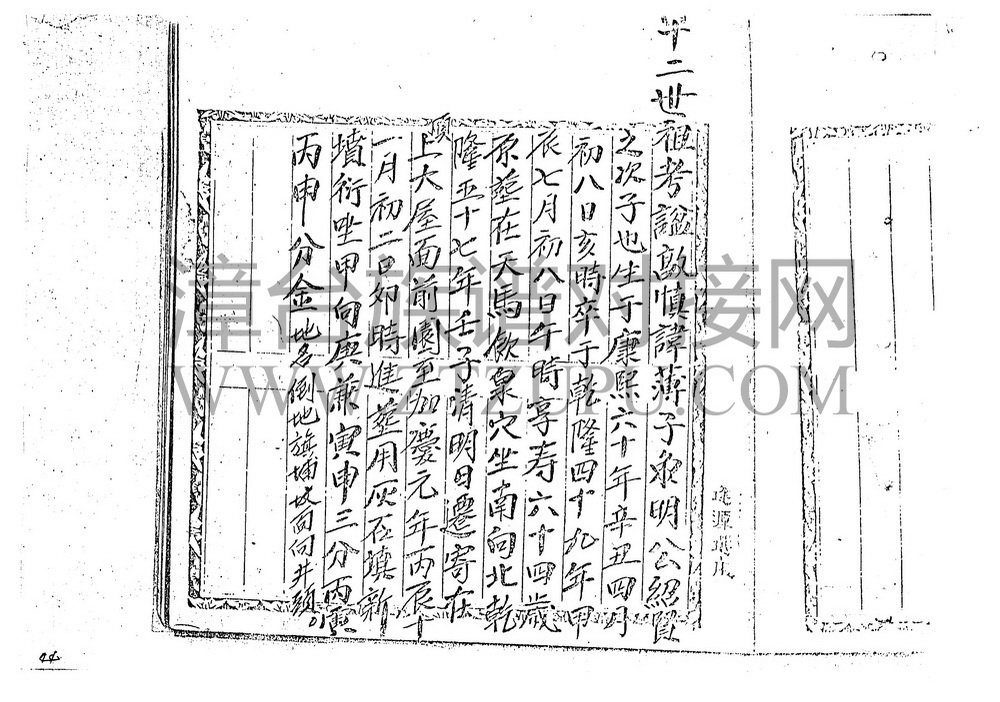 十二世祖考諡敦慎諱薄子泉明公紹賢
之次子也生于康熙六十年辛丑四月
初八日亥時卒于乾隆四十九年甲
辰七月初八日午時享寿六十四歲
原塟在天馬飲泉穴坐南向北乾
隆五十七年壬子清明日遷寄在
頂上大屋面前園至加慶元年丙辰十
一月初二日卯時進塟用灰石填新
墳衍坐甲向庚兼寅申三分丙寅
丙申分金地名倒地旗埔坟面向井頭
漳台族谱对接网
WWW.ZTZUPU.COM
44